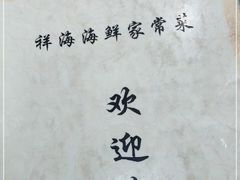 祥海海鲜家常菜
欢迎